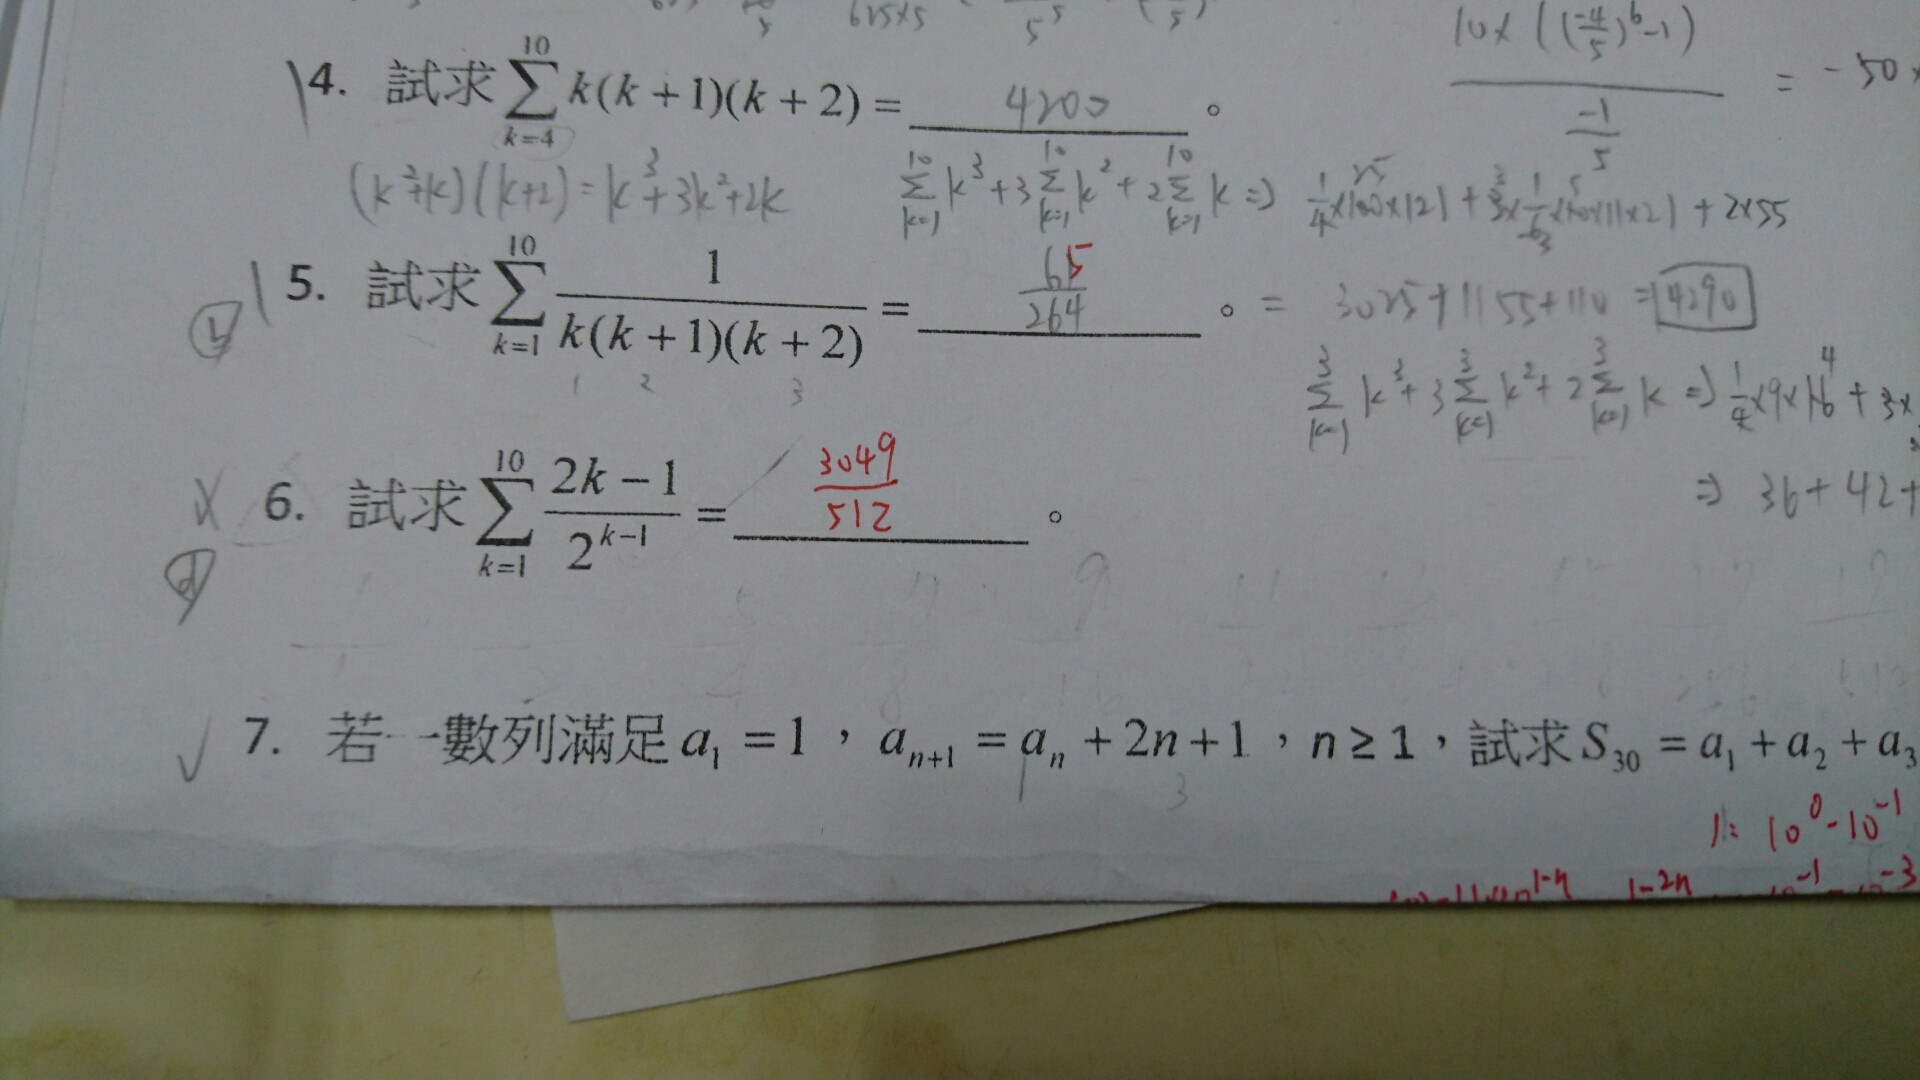 625×5
10×((-4/5)^6-1) / (-1/5) = -50×
4. 試求 ∑_{k=4}^{10} k(k+1)(k+2) = 4200 。
(k²+k)(k+2)=k³+3k²+2k
∑_{k=1}^{10} k³+3∑_{k=1}^{10} k²+2∑_{k=1}^{10} k ⇒ 1/4×100×121+3×1/6×10×11×21+2×55
5. 試求 ∑_{k=1}^{10} 1/(k(k+1)(k+2)) = 65/264 。
= 3025+1155+110=4290
1 2 3
∑_{k=1}^{3} k³+3∑_{k=1}^{3} k²+2∑_{k=1}^{3} k ⇒ 1/4×9×16+3×
6. 試求 ∑_{k=1}^{10} (2k-1)/2^{k-1} = 3049/512 。
⇒ 36+42+
7. 若一數列滿足 a₁ = 1，aₙ₊₁ = aₙ + 2n+1，n ≥ 1，試求 S₃₀ = a₁ + a₂ + a₃
3
1: 10^0-10^-1